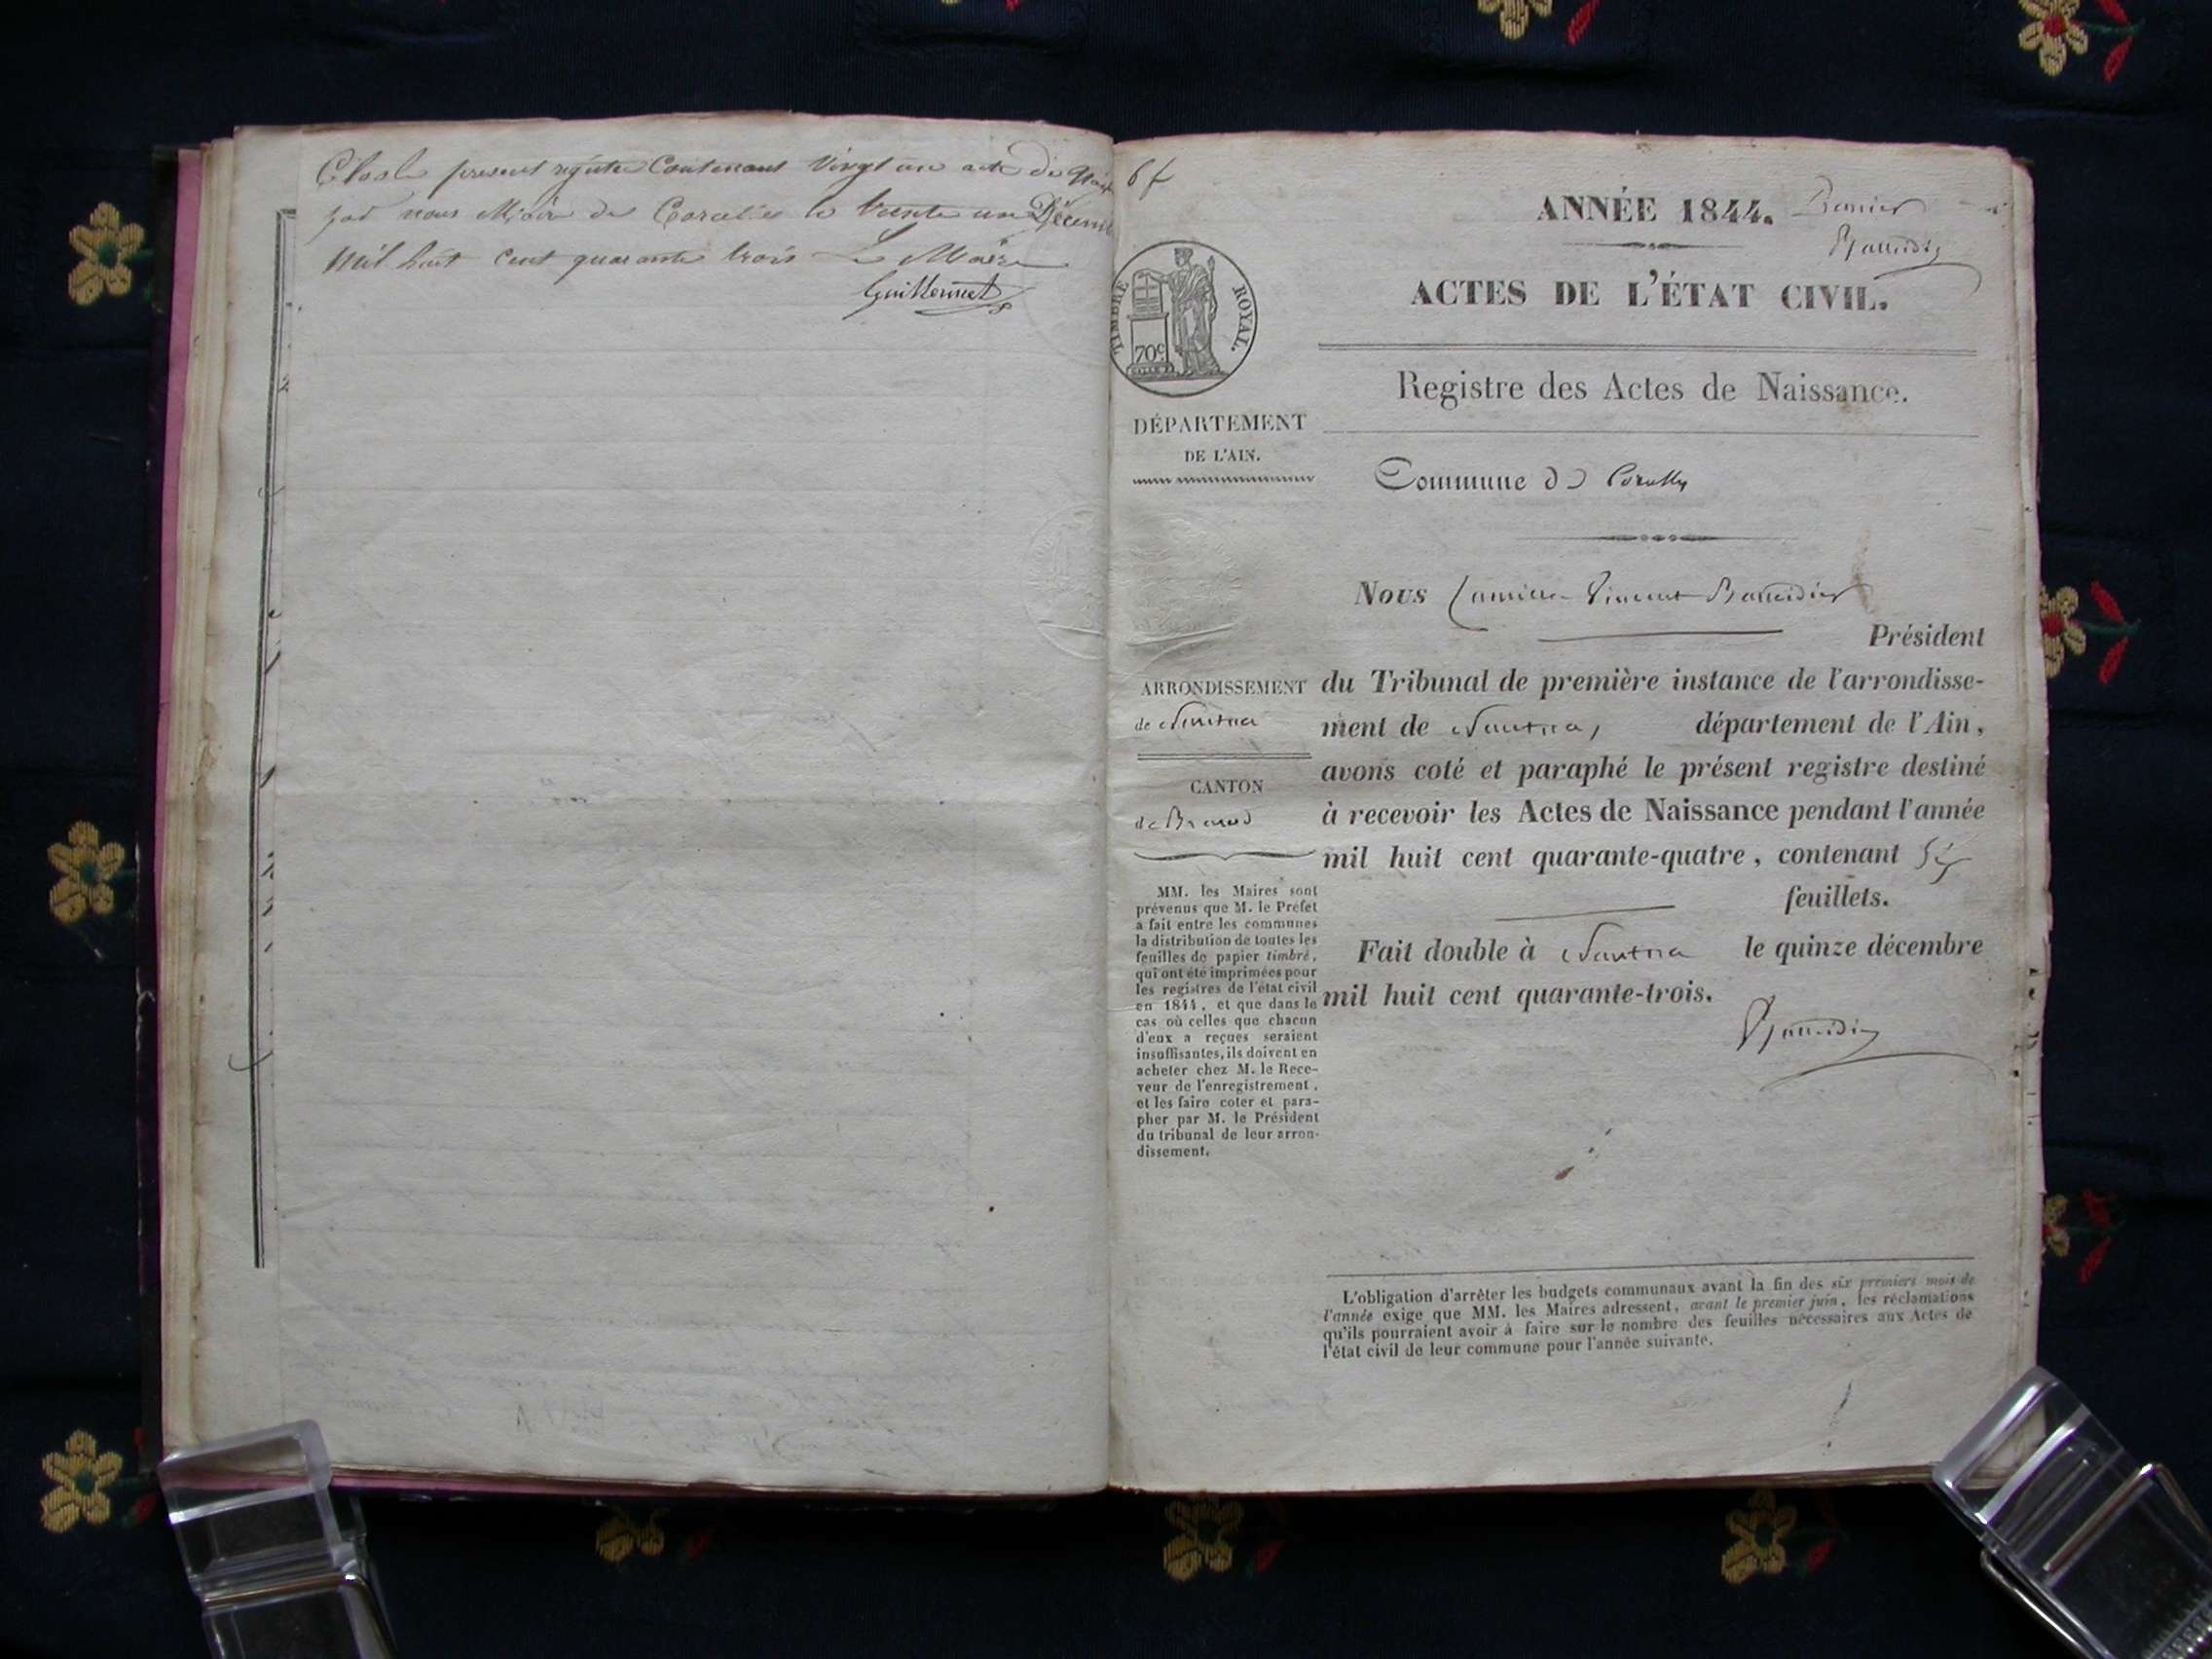 Clos le present registre Contenant vingt un acte de
par nous Maire de Corcelles le trente un
mil huit Cent quarante trois Le Maire
Guillermet
6 f
ANNÉE 1844. Premier
ACTES DE L'ÉTAT CIVIL.
TIMBRE ROYAL.
70c
Registre des Actes de Naissance.
DÉPARTEMENT
DE L'AIN.
Commune de Corcelles
Nous Vincent
Président
ARRONDISSEMENT
de Nantua
CANTON
de Brenod
du Tribunal de première instance de l'arrondisse-
ment de Nantua, département de l'Ain,
avons coté et paraphé le présent registre destiné
à recevoir les Actes de Naissance pendant l'année
mil huit cent quarante-quatre, contenant Six
feuillets.
Fait double à Nantua le quinze décembre
mil huit cent quarante-trois.
MM. les Maires sont
prévenus que M. le Préfet
a fait entre les communes
la distribution de toutes les
feuilles de papier timbré,
qui ont été imprimées pour
les registres de l'état civil
en 1844, et que dans le
cas où celles que chacun
d'eux a reçues seraient
insuffisantes, ils doivent en
acheter chez M. le Rece-
veur de l'enregistrement,
et les faire coter et para-
pher par M. le Président
du tribunal de leur arron-
dissement.
L'obligation d'arrêter les budgets communaux avant la fin des six premiers mois de
l'année exige que MM. les Maires adressent, avant le premier juin, les réclamations
qu'ils pourraient avoir à faire sur le nombre des feuilles nécessaires aux Actes de
l'état civil de leur commune pour l'année suivante.